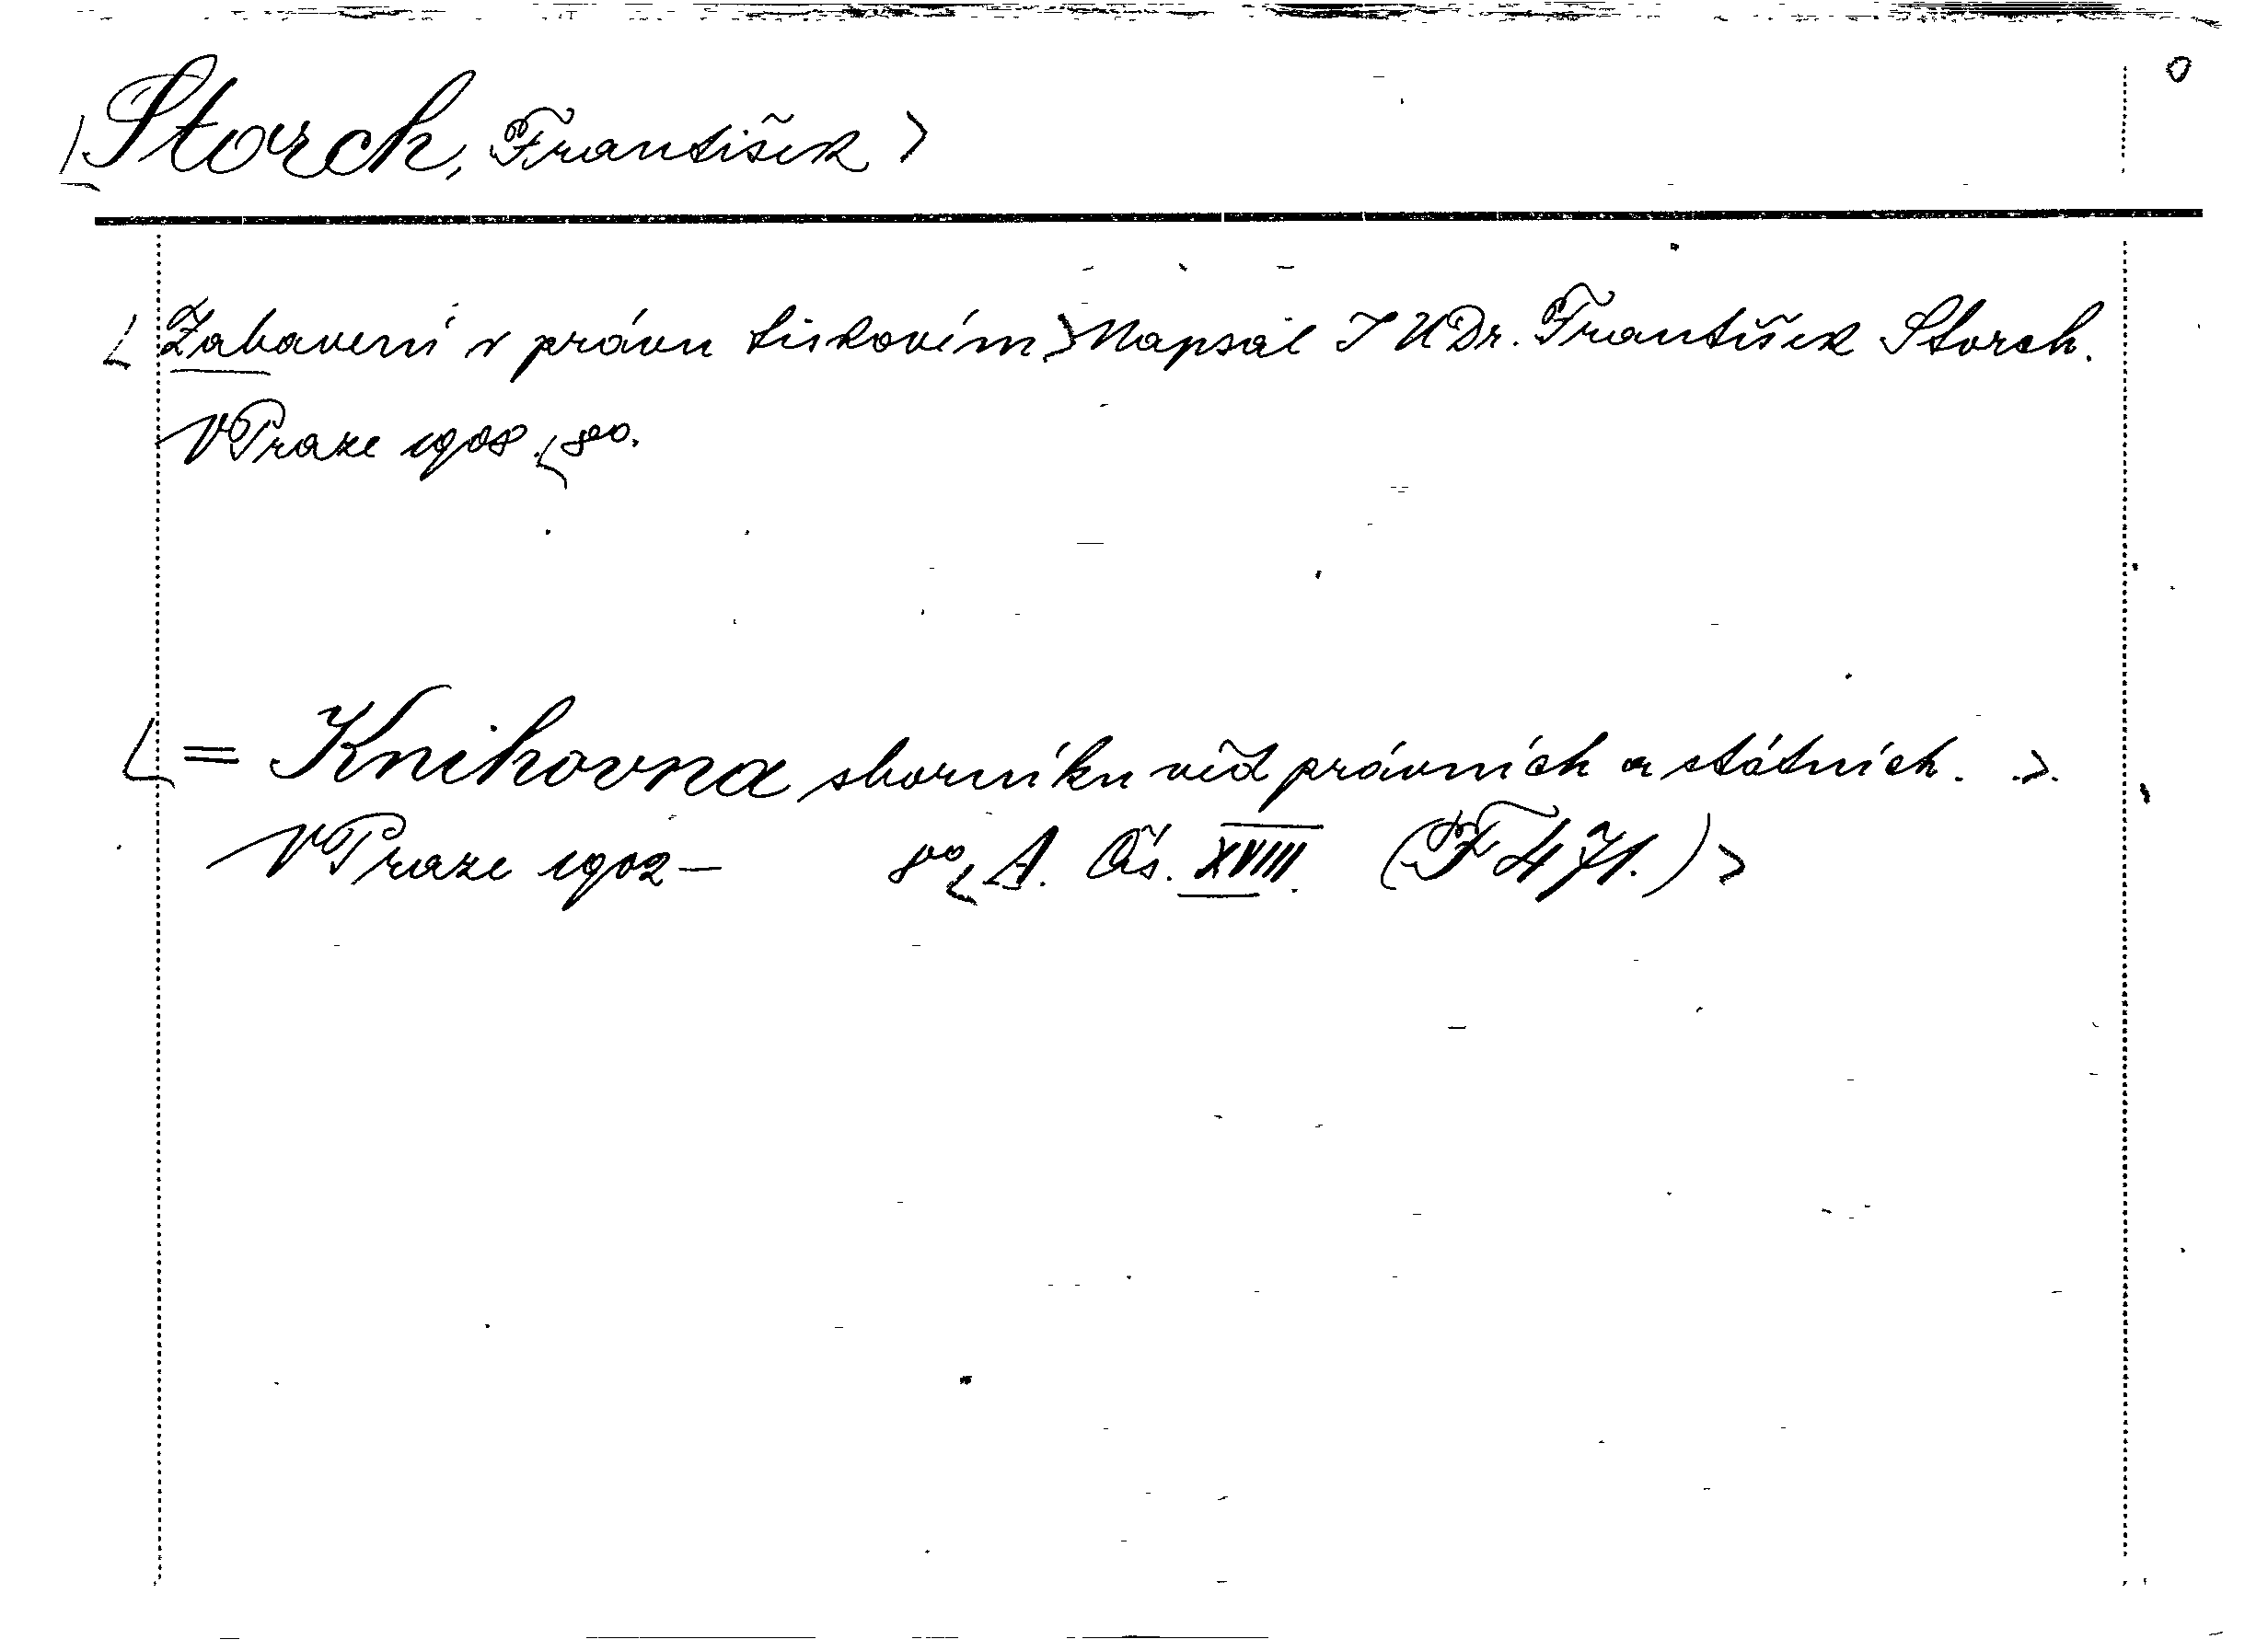 Storch, František
Zabavení v právu tiskovém. Napsal JUDr. František Storch.
V Praze 1908. 8°.
= Knihovna sborníku věd právních a státních.
V Praze 1902– 8° A. Čís. XVIII. (F 471.)